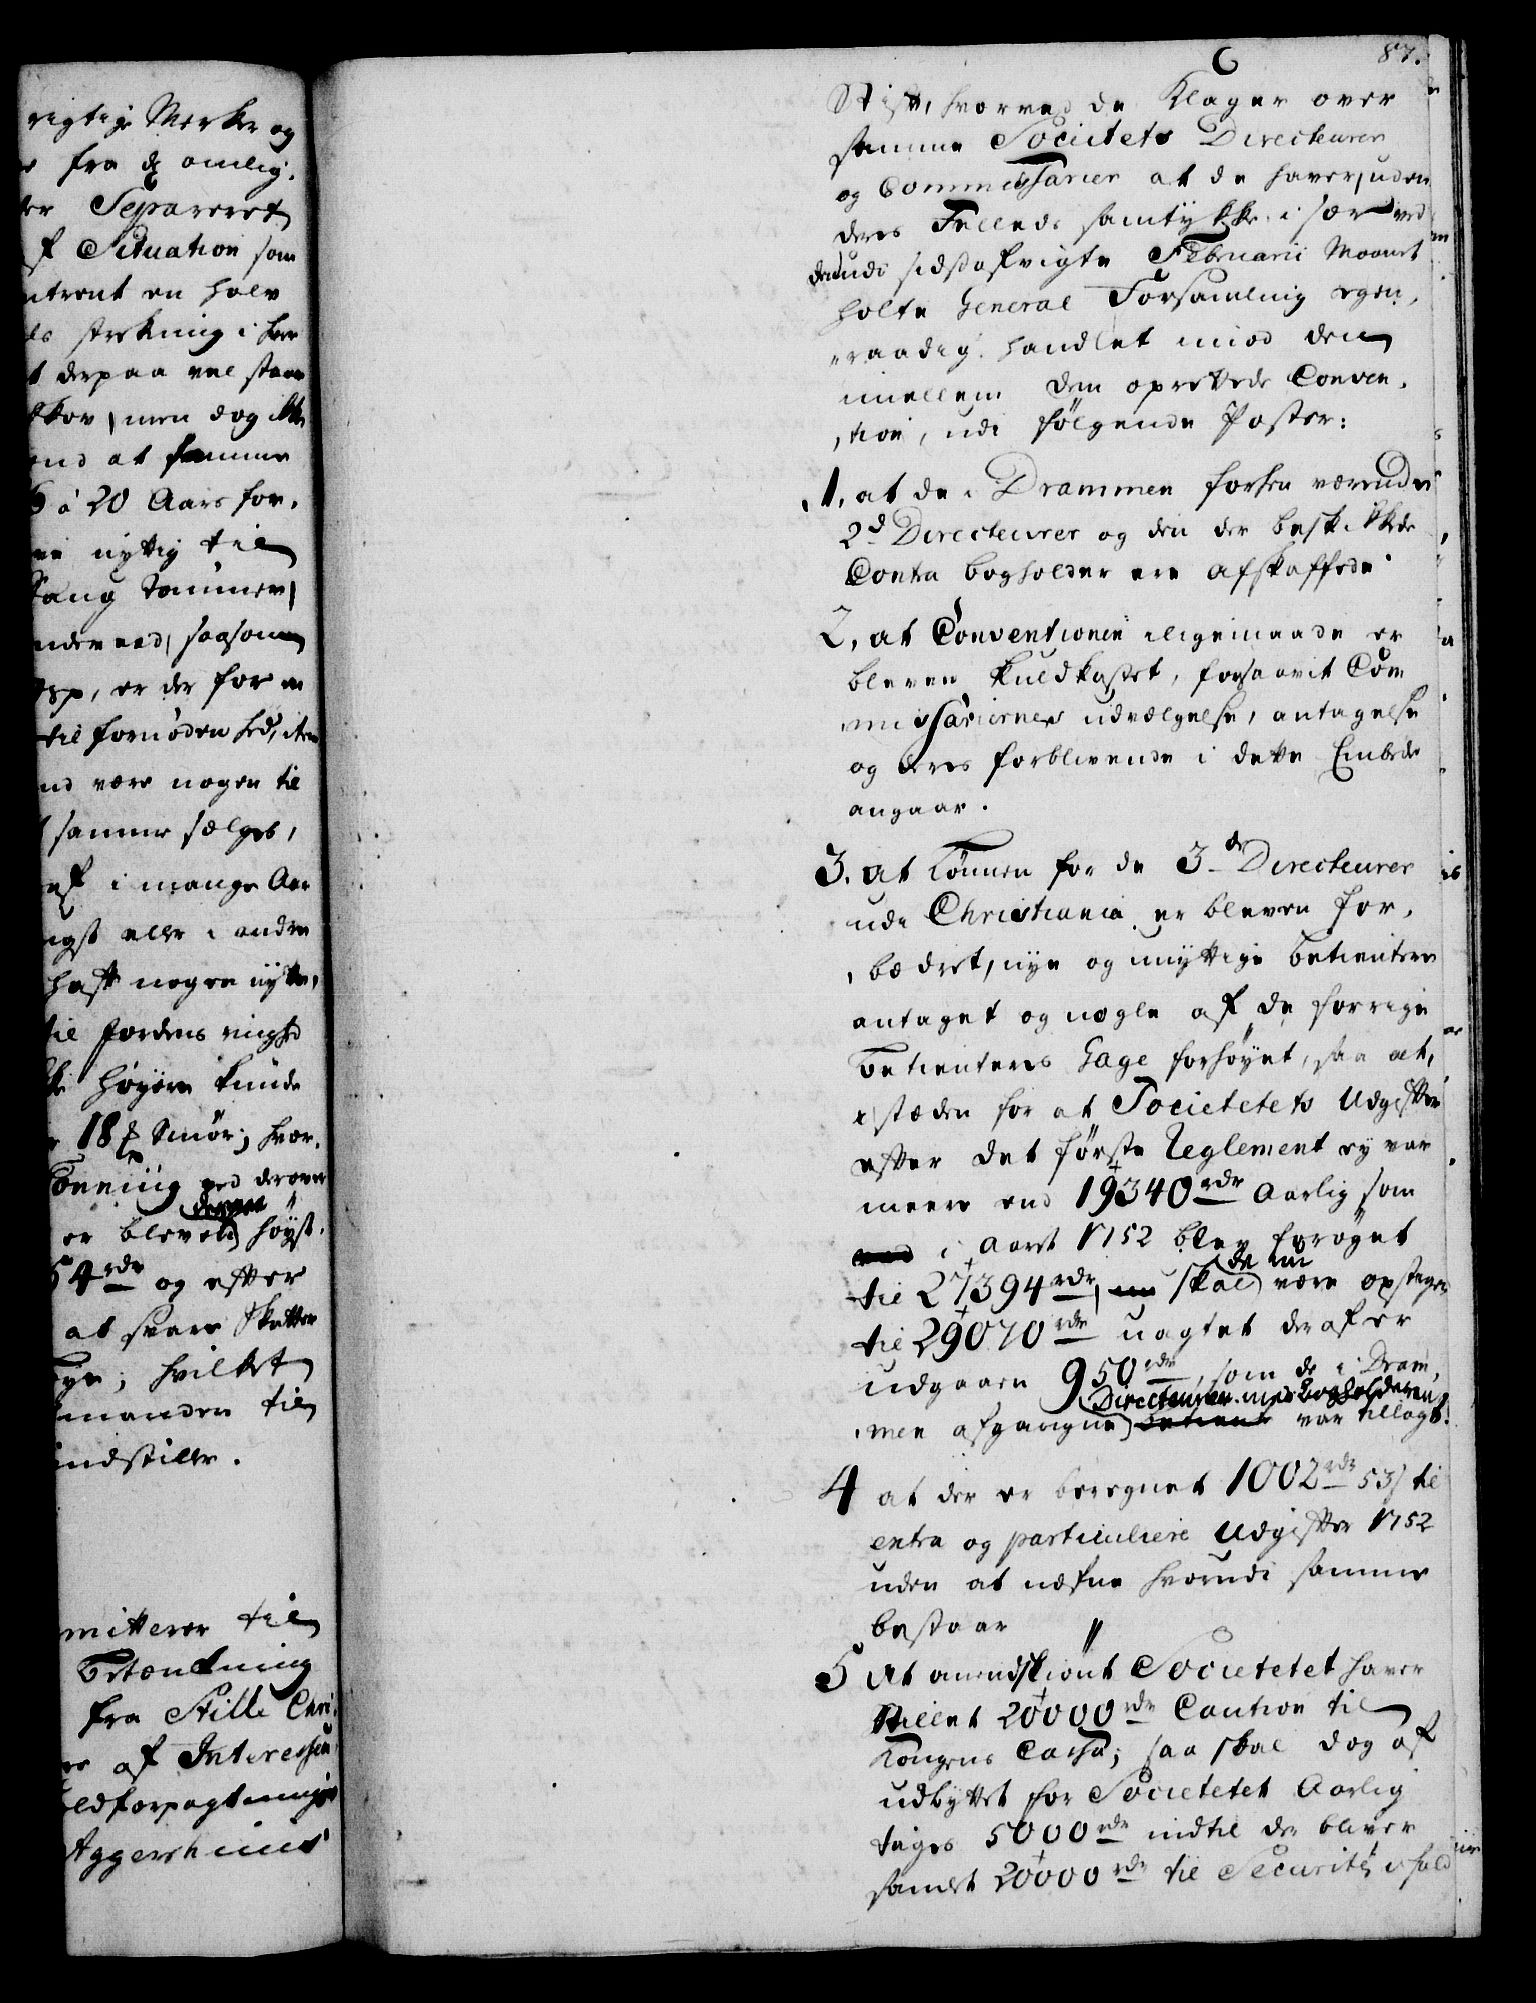 rigtige Merker og
fra & omlig.
Separeret
f Situation som
ntrent en halv
ds strekning i
t derpaa vel staae
skov, men dog ikke
end at samme
6 á 20 Aars for.
nyttig til
Saug Tømmer,
nderved, saasom
er der for
til fornødenhed, item
nd være nogen til
samme sælges,
af i mange Aar
ngst eller i andre
haft nogen nytte,
til Jordens ringhed
høyere kunde
18 ℔ Smør; hvor.
Tønning ved derover
derpaa
er bleven høyst.
54 rdr og efter
at svare Skatter
bye; hvilket
manden til
indstille.
mitterer til
Betænkning
fra Stilte Chri
af Interessen
oldforpagtnings
Aggershuus
87.
Stift, hvorved de Klager over
samme Societets Directeurer
og Commissarier at de haver, uden
deres Fælleds samtykke i sær ved
den udi sidstafvigte Februarii Maanet
holte General Forsamling egen,
raadig handlet imod den
imellem dem oprettede Conven,
tion, udi følgende Poster:
1, at de i Drammen forhen værende
2de Directeurer og den der beskikkede
Contra bogholder ere afskaffede
2, at Conventionen iligemaade er
bleven kuldkastet, forsaavit Com
missariernes udvælgelse, antagelse
og deres forblivende i dette Embede
angaar.
3. at Lønnen for de 3de Directeurer
udi Christiania er bleven for,
bædret, nye og unyttige betientere
antaget og nogle af de forrige
betienteres Gage forhøyet, saa at,
i stæden for at Societetets Udgifter
efter det første Reglement ey var
meere end 19340 rdr Aarlig som
i Aaret 1752 blev forøget
de nu
til 27394 rdr, skal være opstegen
til 29070 rdr uagtet deraf er
udgaaen 950 rdr, som de i Dram,
Directeurer med bogholderen
men afgangne var tillagt.
4 at der er beregnet 1002 rdr 53 s til
extra og particuliere Udgifter 1752
uden at næfne hvorudi samme
bestaar
5 At anendskiønt Societetet haver
stillet 20000 rdr Caution til
Kongens Cassa; saa skal dog af
udbyttet for Societetet Aarlig
tages 5000 rdr indtil der bliver
samlet 20000 rdr til Securité, i fald